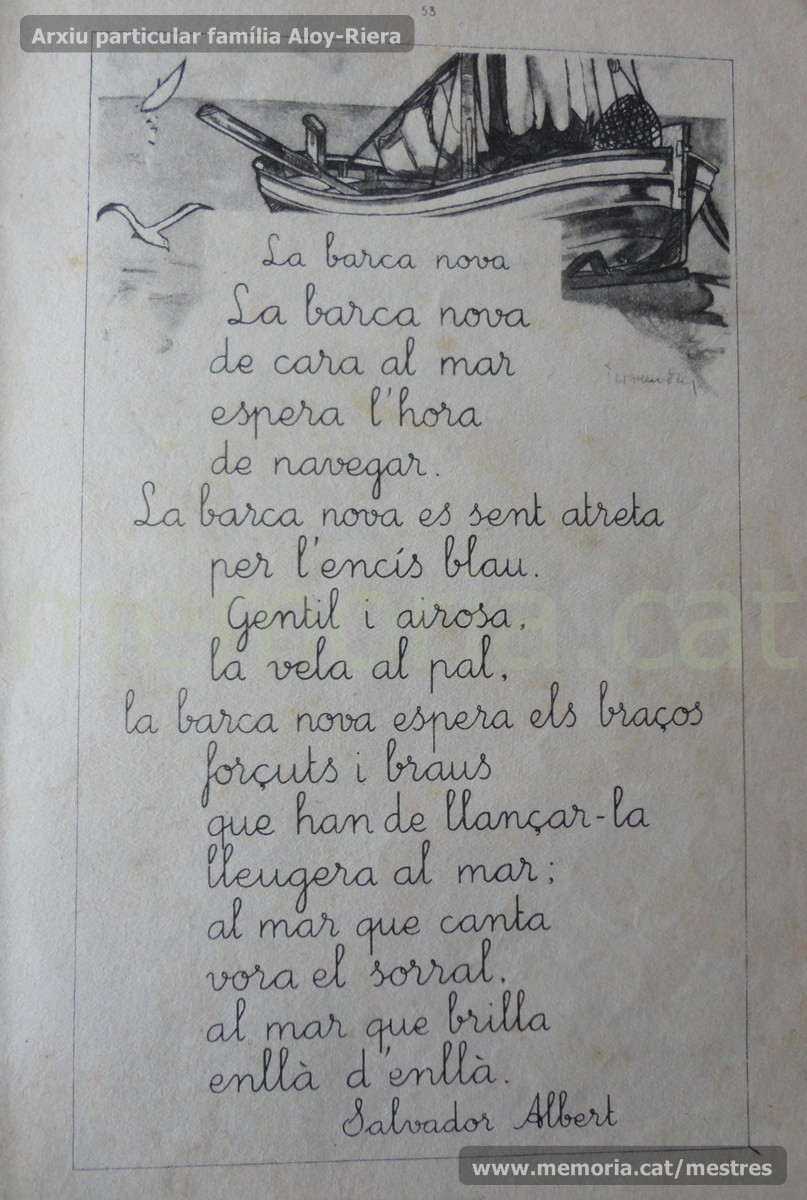 53
Arxiu particular família Aloy-Riera
La barca nova
La barca nova
de cara al mar
espera l'hora
de navegar.
La barca nova es sent atreta
per l'encís blau.
Gentil i airosa,
la vela al pal,
la barca nova espera els braços
forçuts i braus
que han de llançar-la
lleugera al mar;
al mar que canta
vora el sorral,
al mar que brilla
enllà d'enllà.
Salvador Albert
memoria.cat
www.memoria.cat/mestres